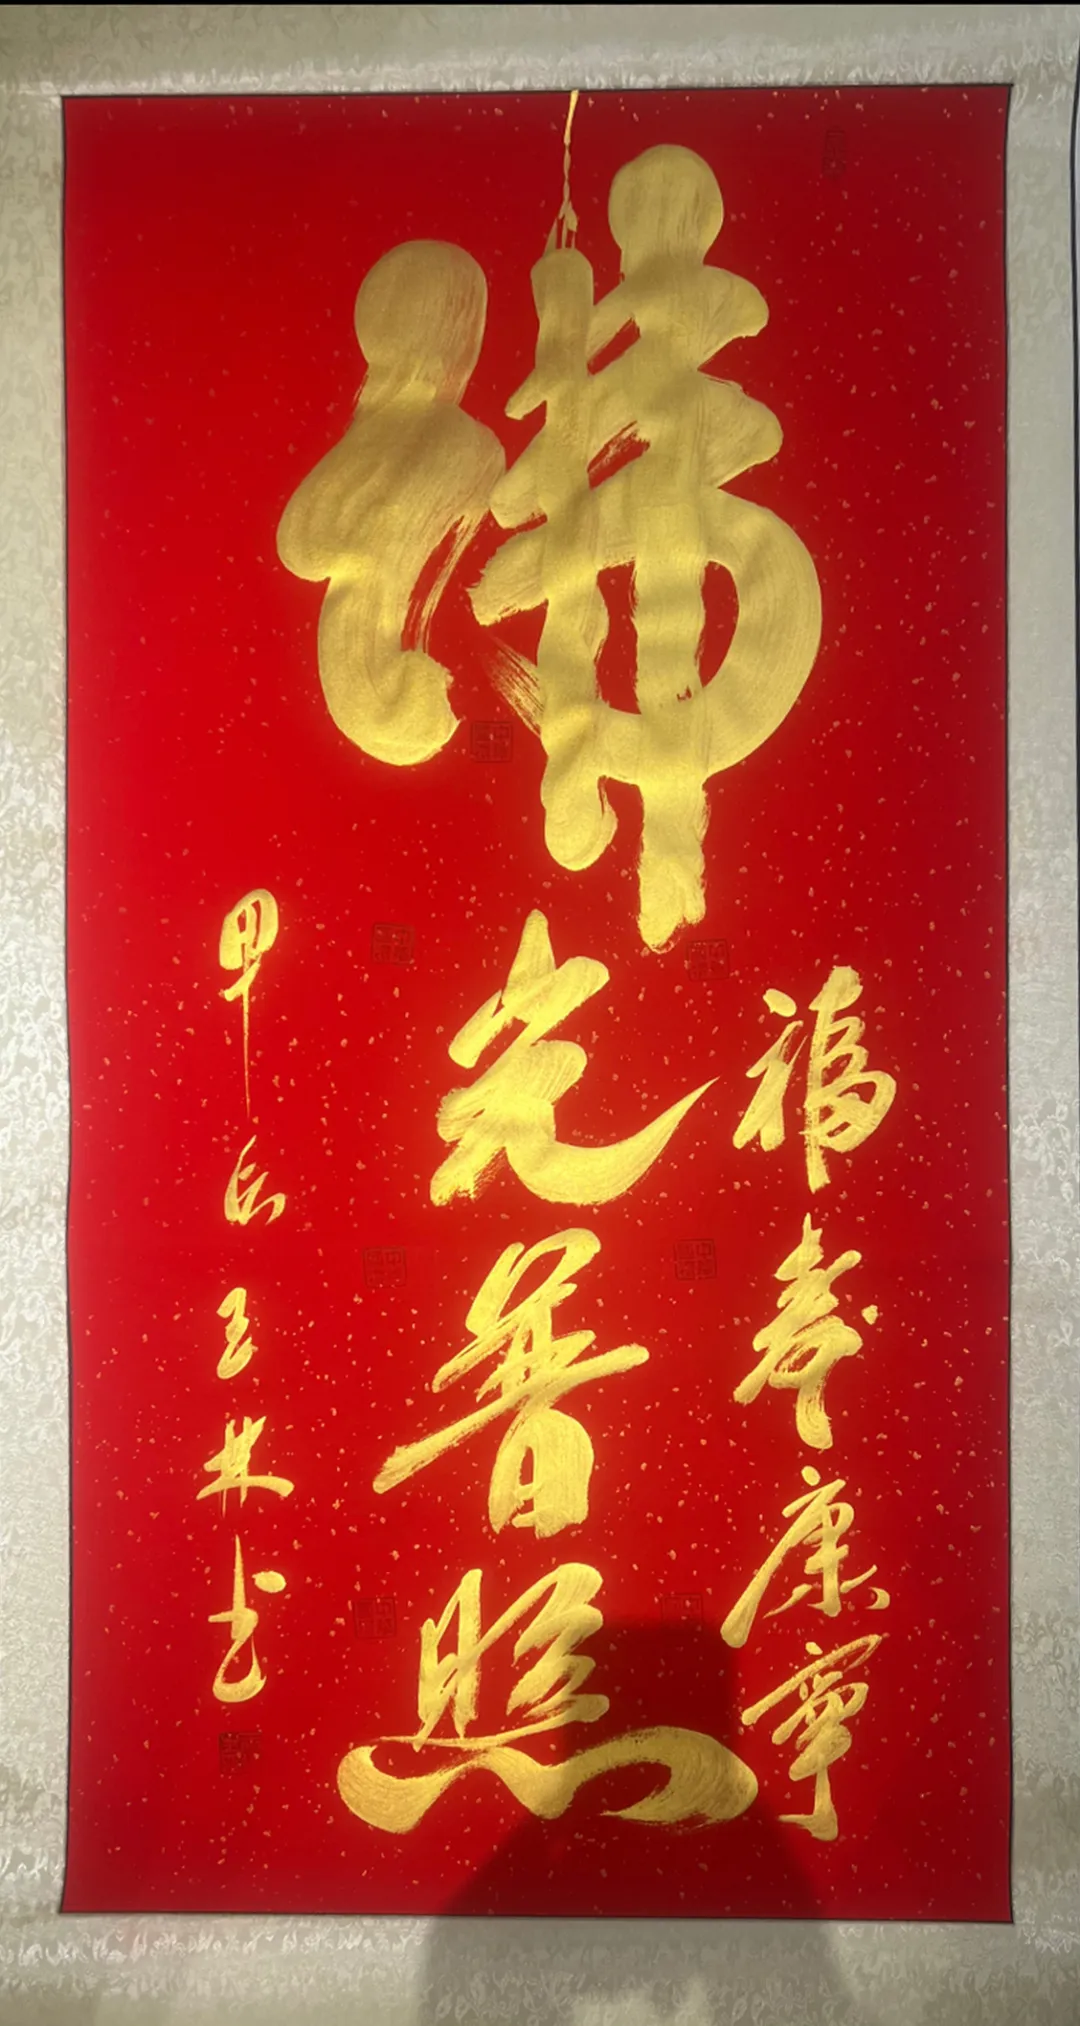 福寿康寧
佛光普照
甲辰 林书